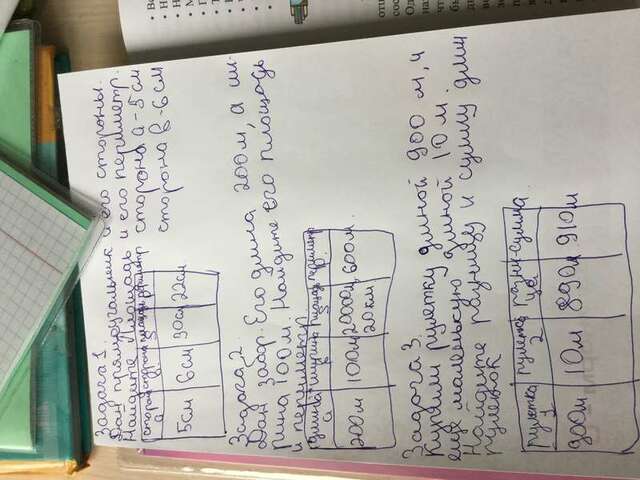 Задача 1.
Дан прямоугольник и его стороны.
Найдите площадь и его периметр.
сторона а - 5см
сторона в - 6см
сторона а сторона в площадь S периметр
5см 6см 30см 22см
Задача 2.
Дан забор. Его длина 200м, а ши-
рина 100м. Найдите его площадь
и периметр.
длина а ширина в площадь S периметр P
200м 100м 20000м, 20км 600м.
Задача 3.
Купили рулетку длиной 900 м, и
еще маленькую длиной 10 м.
Найдите разницу и сумму длин
рулеток
рулетка 1 рулетка 2 разни-ца сумма
900м 10м 890м 910м